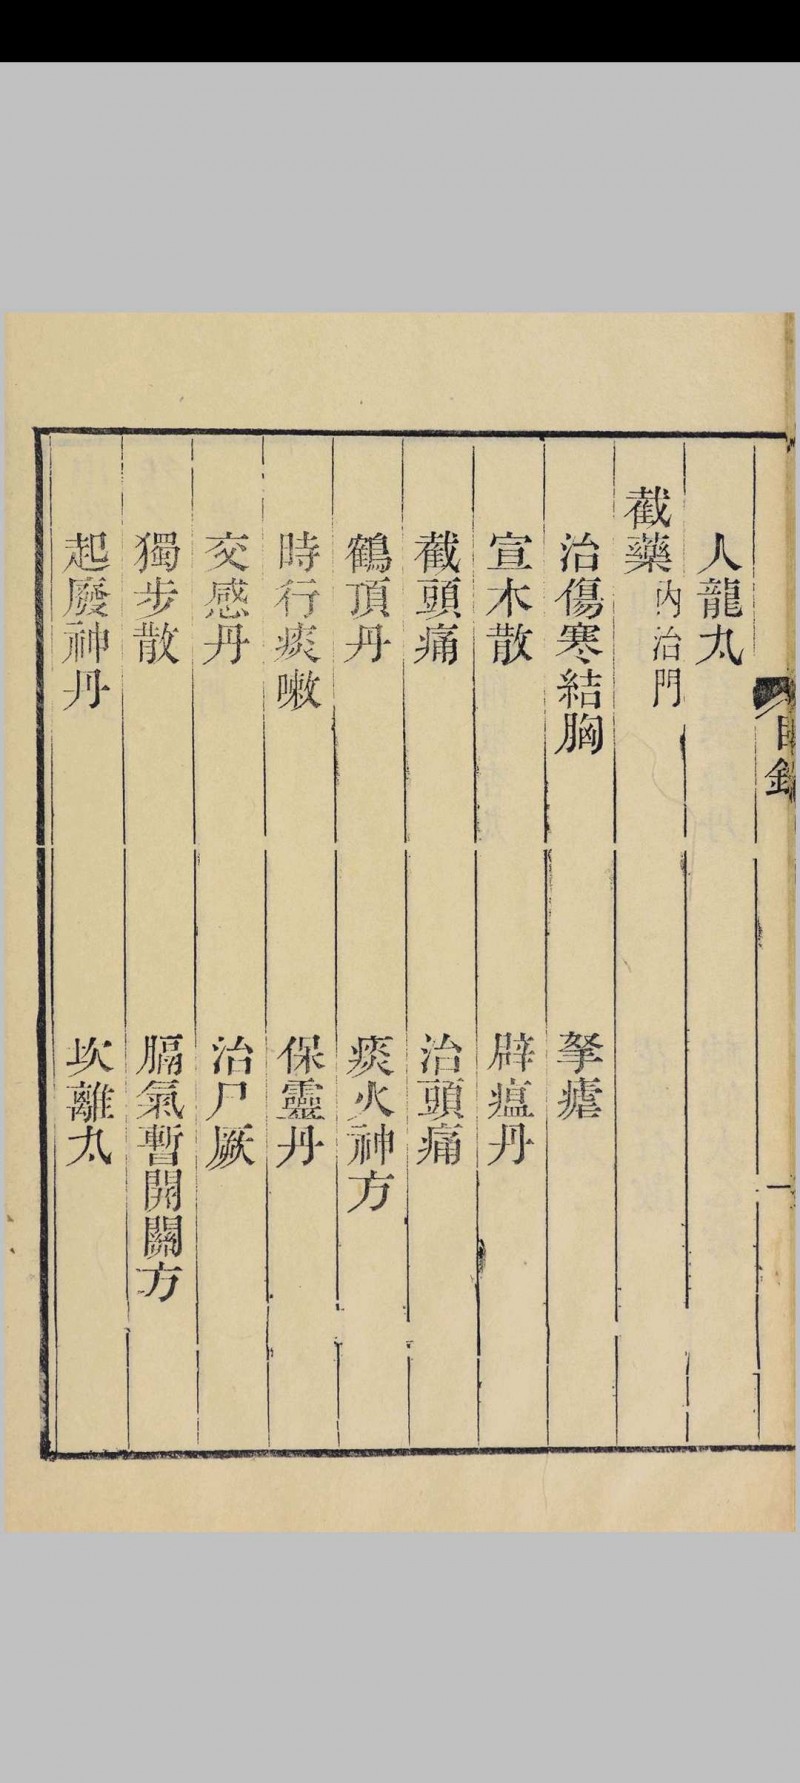 目錄
一
人龍丸
截藥 內治門
治傷寒結胸
拏瘧
宣木散
辟瘟丹
截頭痛
治頭痛
鶴頂丹
痰火神方
時行痰嗽
保靈丹
交感丹
治尸厥
獨步散
膈氣暫開關方
起廢神丹
坎離丸